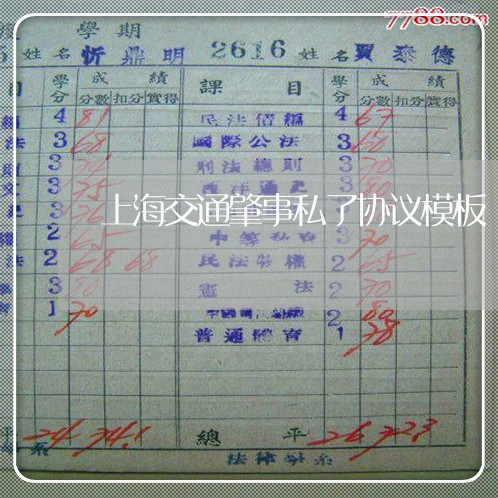 7788.com
學期
姓名 忻鼎明 2616 姓名 賈泰德
目 學分 成績 課目 學分 成績
分數 扣分 實得 分數 扣分 實得
4 81 民法債編 4 67
法 3 68 國際公法 3 60
3 刑法總則 3 70
3 75 西洋通史 3 80
上海交通肇事私了协议模板
2 65 3 70
法 2 68 68 民法物權 2 65
3 80 憲法 2 70
1 70 2 80
普通體育 1 78
平 24 74.1 總平 26 72.3
系 法律學系